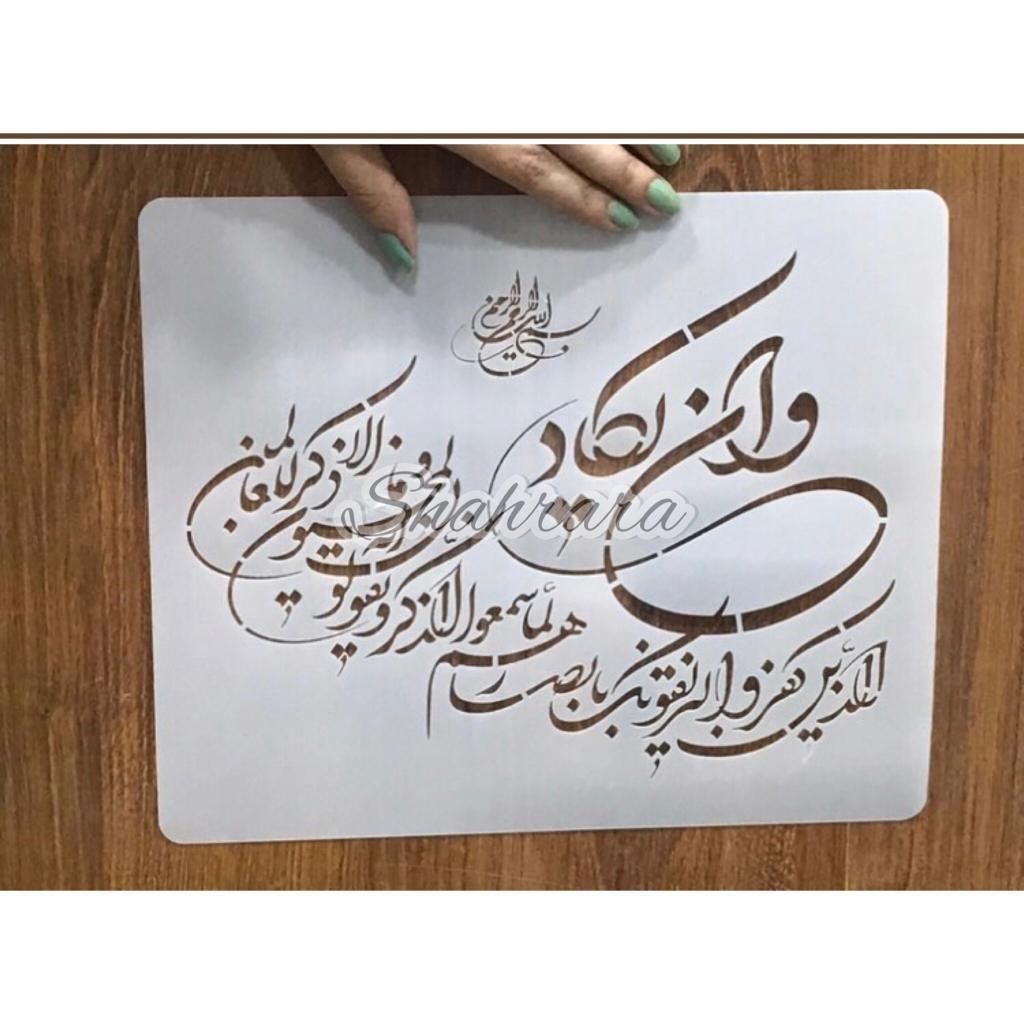 بسم الله الرحمن الرحیم
وان یکاد
الذین کفروا لیزلقونک بابصارهم
لما سمعوا الذکر و یقولون انه
لمجنون و ما هو
الا ذکر للعالمین
Shahrara